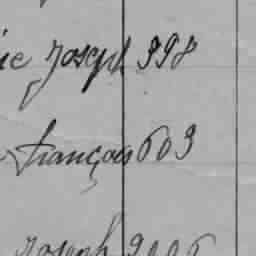 ie Joseph 998
françois 603
Joseph 2006